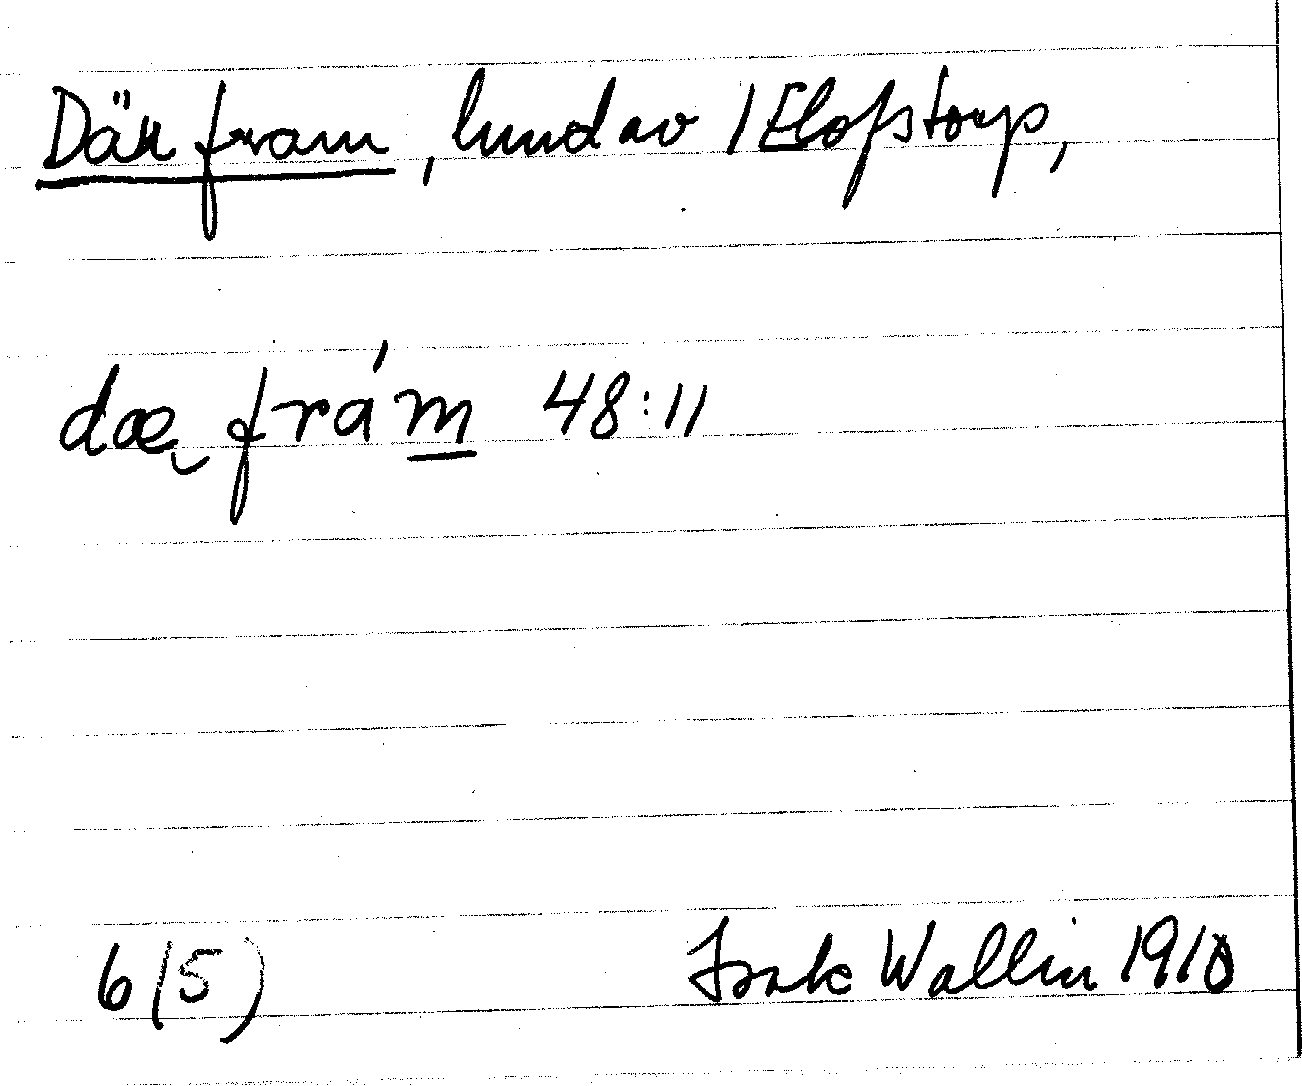 Där fram, lund av 1 Elofstorp,
dæ̨ frá´m 48:11
6 (5)
Frak Wallin 1910